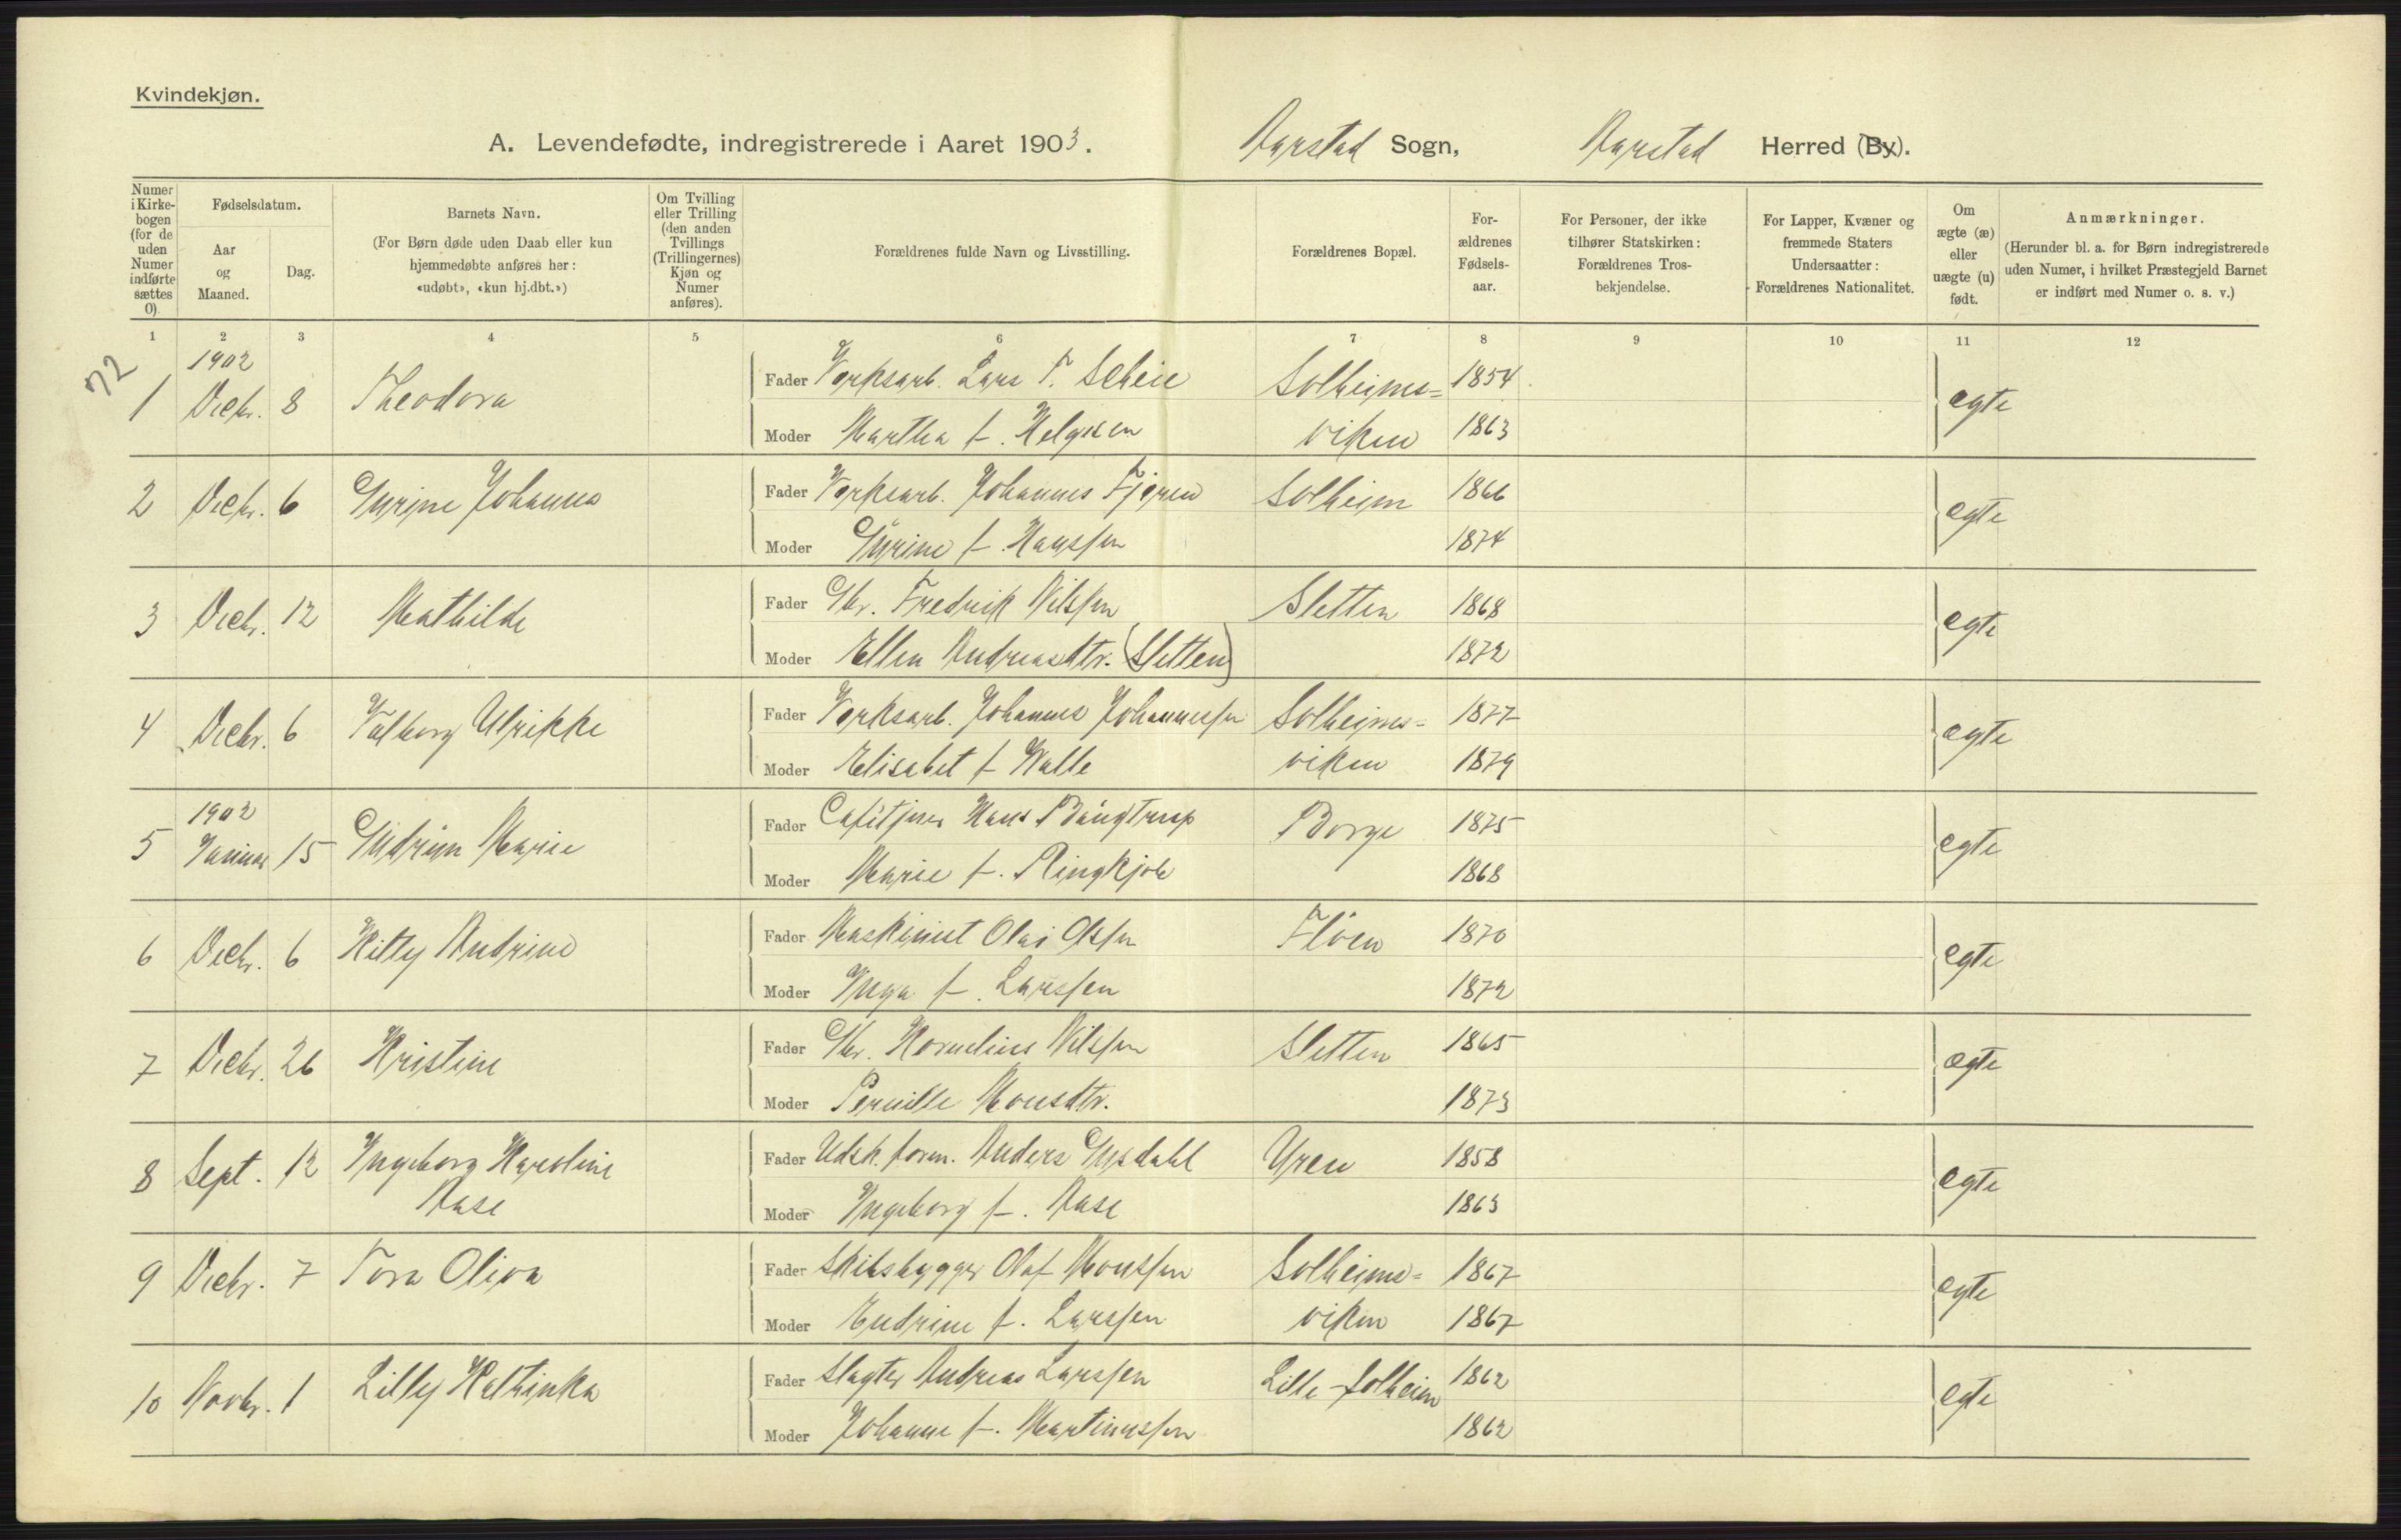 Kvindekjøn.
A. Levendefødte, indregistrerede i Aaret 1903. Aarstad Sogn, Aarstad Herred (By).
Numer i Kirke-bogen (for de uden Numer indførte sættes 0)
Fødselsdatum.
Aar og Maaned.
Dag.
Barnets Navn.
(For Børn døde uden Daab eller kun hjemmedøbte anføres her: «udøbt», «kun hj.dbt.»)
Om Tvilling eller Trilling (den anden Tvillings (Trillingernes) Kjøn og Numer anføres).
Forældrenes fulde Navn og Livsstilling.
Forældrenes Bopæl.
For-ældrenes Fødsels-aar.
For Personer, der ikke tilhører Statskirken: Forældrenes Tros-bekjendelse.
For Lapper, Kvæner og fremmede Staters Undersaatter: Forældrenes Nationalitet.
Om ægte (æ) eller uægte (u) født.
Anmærkninger.
(Herunder bl. a. for Børn indregistrerede uden Numer, i hvilket Præstegjeld Barnet er indført med Numer o. s. v.)
1 2 3 4 5 6 7 8 9 10 11 12
72
1902
1 Decbr. 8 Theodora Fader Verksarb. Lars T. Scheie Solheims= 1854 egte
Moder Martha f. Helgesen viken 1863
2 Decbr. 6 Gurine Johanna Fader Verksarb. Johannes Fjeren Solheim 1866 egte
Moder Gurine f. Hanssen 1874
3 Decbr. 12 Mathilde Fader Gbr. Fredrik Nilssen Sletten 1868 egte
Moder Ellen Andreasdtr. (Sletten) 1872
4 Decbr. 6 Valborg Ulrikke Fader Verksarb. Johannes Johannessen Solheims= 1877 egte
Moder Elisabet f. Walle viken 1879
1902
5 Januar 15 Gudrun Marie Fader Hans Baugtrup Borge 1875 egte
Moder Marie f. Ringkjøb 1868
6 Decbr. 6 Kitty Andrine Fader Maskinist Olai Olsen Fløen 1870 egte
Moder Inga f. Larssen 1872
7 Decbr. 26 Kristine Fader Gbr. Kornelius Nilssen Sletten 1865 egte
Moder Pernille Monsdtr. 1873
8 Sept. 12 Ingeborg Karoline Fader Udsk. form. Anders Gusdahl Uren 1858 egte
Aase Moder Ingeborg f. Aase 1863
9 Decbr. 7 Tora Oliva Fader Skibsbygger Olaf Monssen Solheims= 1867 egte
Moder Endrine f. Larssen viken 1867
10 Novbr. 1 Lilly Kathinka Fader Slagter Andreas Larssen Lille-Solheim 1862 egte
Moder Johanne f. Martinussen 1862